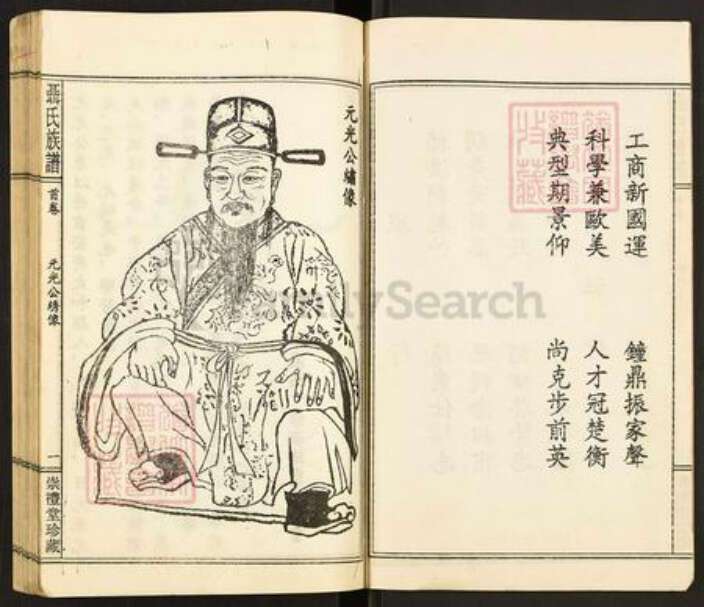 工商新國運
鐘鼎振家聲
科學兼歐美
人才冠楚衡
典型期景仰
尚克步前英
元光公繡像
聶氏族譜
首卷
元光公繡像
一
崇禮堂珍藏
FamilySearch